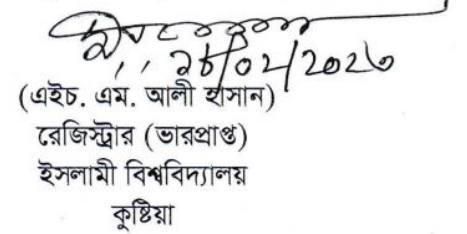 (এইচ. এম. আলী হাসান)
রেজিস্ট্রার (ভারপ্রাপ্ত)
ইসলামী বিশ্ববিদ্যালয়
কুষ্টিয়া